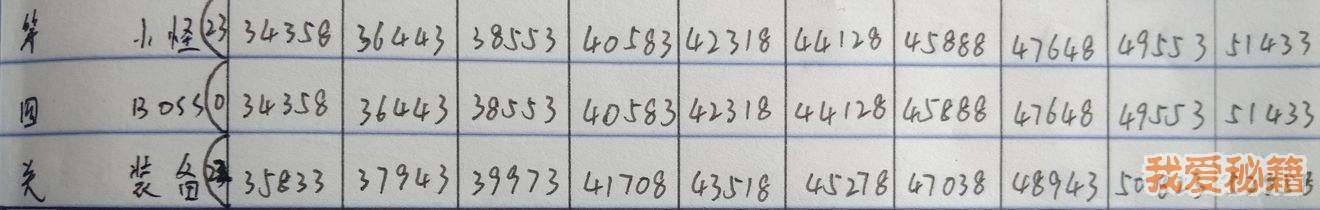 第 小怪(23 34358 36443 38553 40583 42318 44128 45888 47648 49553 51433
四 Boss(0 34358 36443 38553 40583 42318 44128 45888 47648 49553 51433
关 装备 35833 37943 39973 41708 43518 45278 47038 48943
我爱秘籍